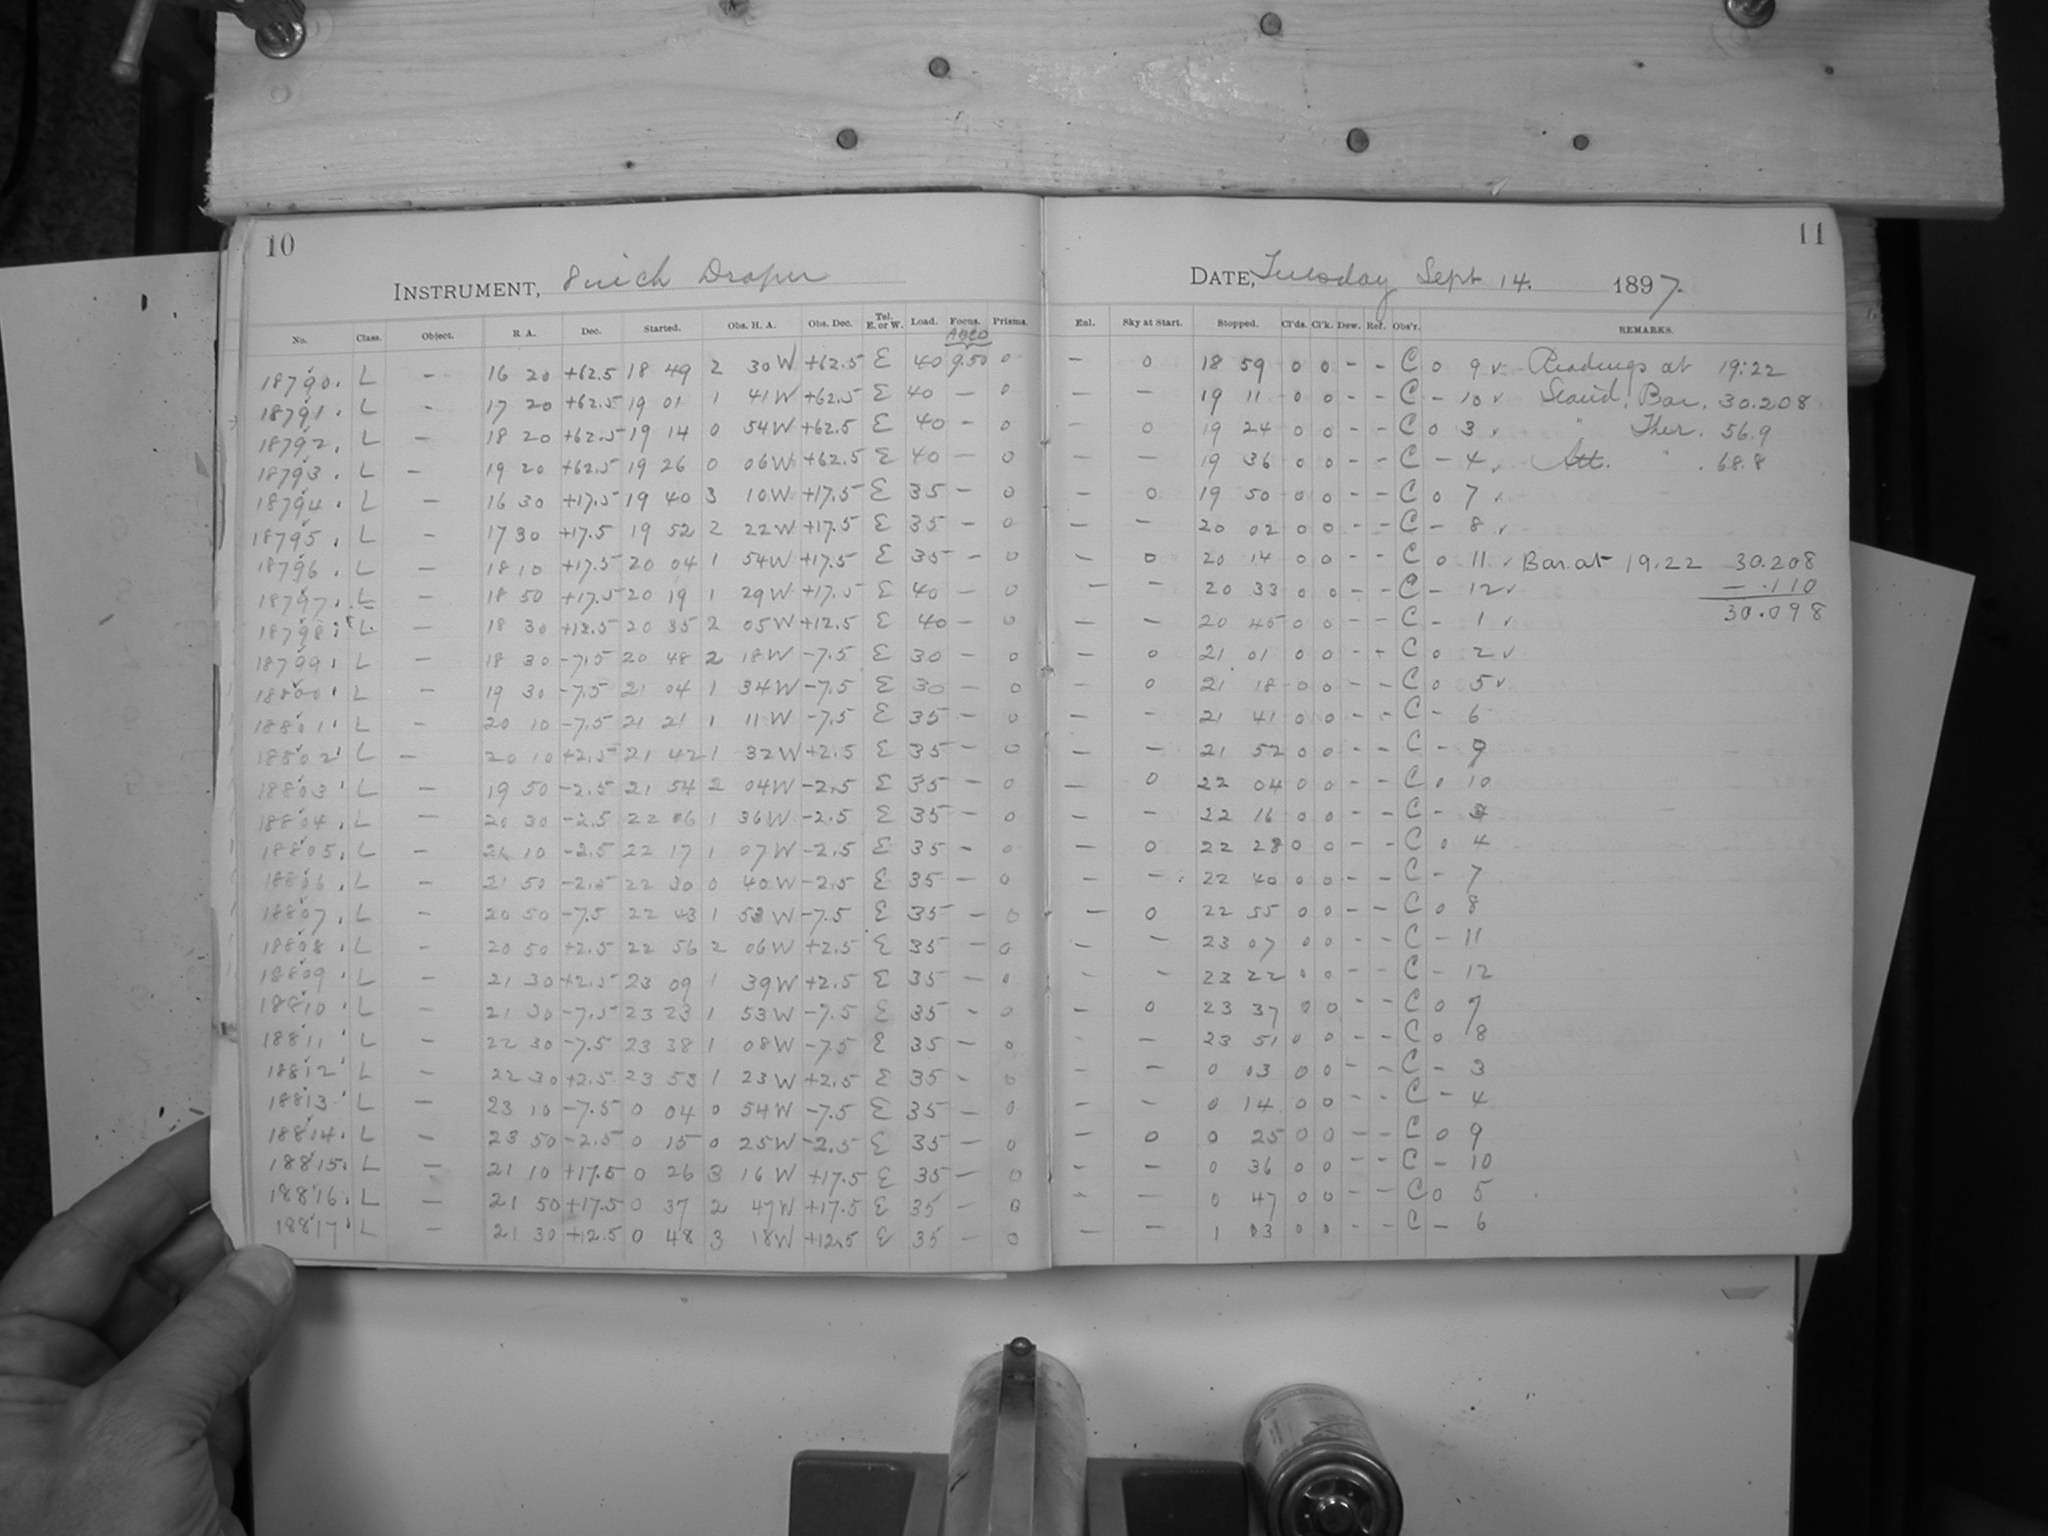 10
11
INSTRUMENT, 8 inch Draper
DATE, Tuesday Sept 14. 1897.
No. Class. Object. R. A. Dec. Started. Obs. H. A. Obs. Dec. Tel. E. or W. Load. Focus. Prisms. Enl. Sky at Start. Stopped. Cl'ds. Cl'k. Dew. Ref. Obs'r. REMARKS.
18790. L - 16 20 +62.5 18 49 2 30 W +62.5 E 40 9.50 0 - 0 18 59 0 0 - - C 0 9 v Readings at 19:22
18791. L - 17 20 +62.5 19 01 1 41 W +62.5 E 40 - 0 - - 19 11 0 0 - - C - 10 v Stand. Bar. 30.208
18792. L - 18 20 +62.5 19 14 0 54 W +62.5 E 40 - 0 - 0 19 24 0 0 - - C 0 3 v " Ther. 56.9
18793. L - 19 20 +62.5 19 26 0 06 W +62.5 E 40 - 0 - - 19 36 0 0 - - C - 4 v Att. " 68.8
18794. L - 16 30 +17.5 19 40 3 10 W +17.5 E 35 - 0 - 0 19 50 0 0 - - C 0 7 v
18795. L - 17 30 +17.5 19 52 2 22 W +17.5 E 35 - 0 - - 20 02 0 0 - - C - 8 v
18796. L - 18 10 +17.5 20 04 1 54 W +17.5 E 35 - 0 - 0 20 14 0 0 - - C 0 11 v Bar. at 19.22 30.208
18797. L - 18 50 +17.5 20 19 1 29 W +17.5 E 40 - 0 - - 20 33 0 0 - - C - 12 v - .110
18798. L - 18 30 +12.5 20 35 2 05 W +12.5 E 40 - 0 - - 20 45 0 0 - - C - 1 v 30.098
18799. L - 18 30 -7.5 20 48 2 18 W -7.5 E 30 - 0 - 0 21 01 0 0 - - C 0 2 v
18800. L - 19 30 -7.5 21 04 1 34 W -7.5 E 30 - 0 - 0 21 18 0 0 - - C 0 5 v
18801. L - 20 10 -7.5 21 21 1 11 W -7.5 E 35 - 0 - - 21 41 0 0 - - C - 6
18802. L - 20 10 +2.5 21 42 1 32 W +2.5 E 35 - 0 - - 21 52 0 0 - - C - 9
18803. L - 19 50 -2.5 21 54 2 04 W -2.5 E 35 - 0 - 0 22 04 0 0 - - C 0 10
18804. L - 20 30 -2.5 22 06 1 36 W -2.5 E 35 - 0 - - 22 16 0 0 - - C - 3
18805. L - 21 10 -2.5 22 17 1 07 W -2.5 E 35 - 0 - 0 22 28 0 0 - - C 0 4
18806. L - 21 50 -2.5 22 30 0 40 W -2.5 E 35 - 0 - - 22 40 0 0 - - C - 7
18807. L - 20 50 -7.5 22 43 1 53 W -7.5 E 35 - 0 - 0 22 55 0 0 - - C 0 8
18808. L - 20 50 +2.5 22 56 2 06 W +2.5 E 35 - 0 - - 23 07 0 0 - - C - 11
18809. L - 21 30 +2.5 23 09 1 39 W +2.5 E 35 - 0 - - 23 22 0 0 - - C - 12
18810. L - 21 30 -7.5 23 23 1 53 W -7.5 E 35 - 0 - 0 23 37 0 0 - - C 0 7
18811. L - 22 30 -7.5 23 38 1 08 W -7.5 E 35 - 0 - - 23 51 0 0 - - C 0 8
18812. L - 22 30 +2.5 23 53 1 23 W +2.5 E 35 - 0 - - 0 03 0 0 - - C - 3
18813. L - 23 10 -7.5 0 04 0 54 W -7.5 E 35 - 0 - - 0 14 0 0 - - C - 4
18814. L - 23 50 -2.5 0 15 0 25 W -2.5 E 35 - 0 - 0 0 25 0 0 - - C 0 9
18815. L - 21 10 +17.5 0 26 3 16 W +17.5 E 35 - 0 - - 0 36 0 0 - - C - 10
18816. L - 21 50 +17.5 0 37 2 47 W +17.5 E 35 - 0 - - 0 47 0 0 - - C 0 5
18817. L - 21 30 +12.5 0 48 3 18 W +12.5 E 35 - 0 - - 1 03 0 0 - - C - 6